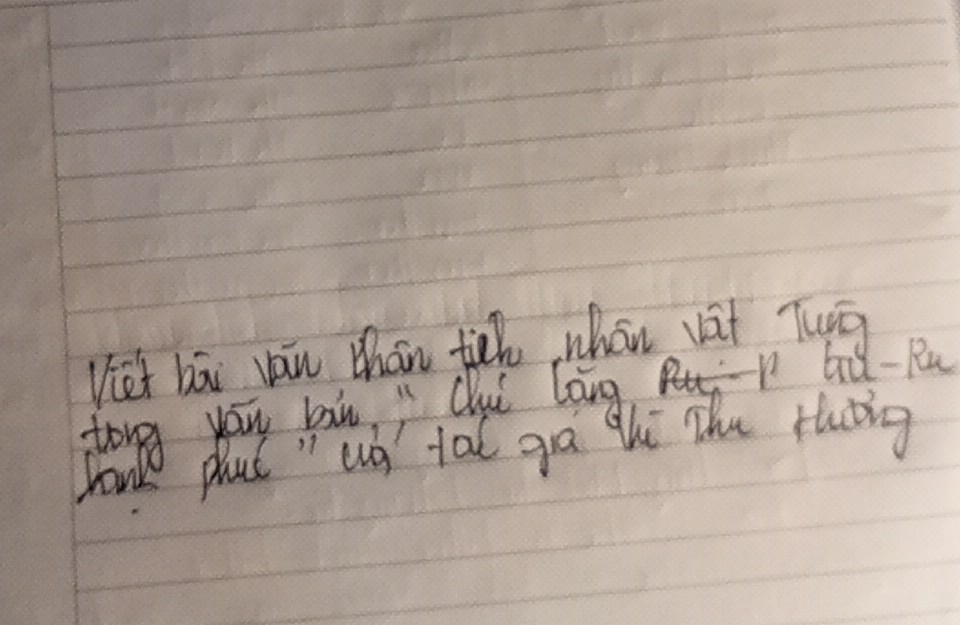 Viết bài văn phân tích nhân vật Tùng
trong văn bản, " Chú lăng
hạnh phúc " của tác giả Vũ Thị Thu Hương